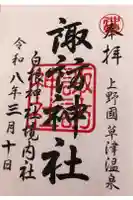 奉拝
上野國草津温泉
諏訪神社
白根神社境内社
令和八年三月十日